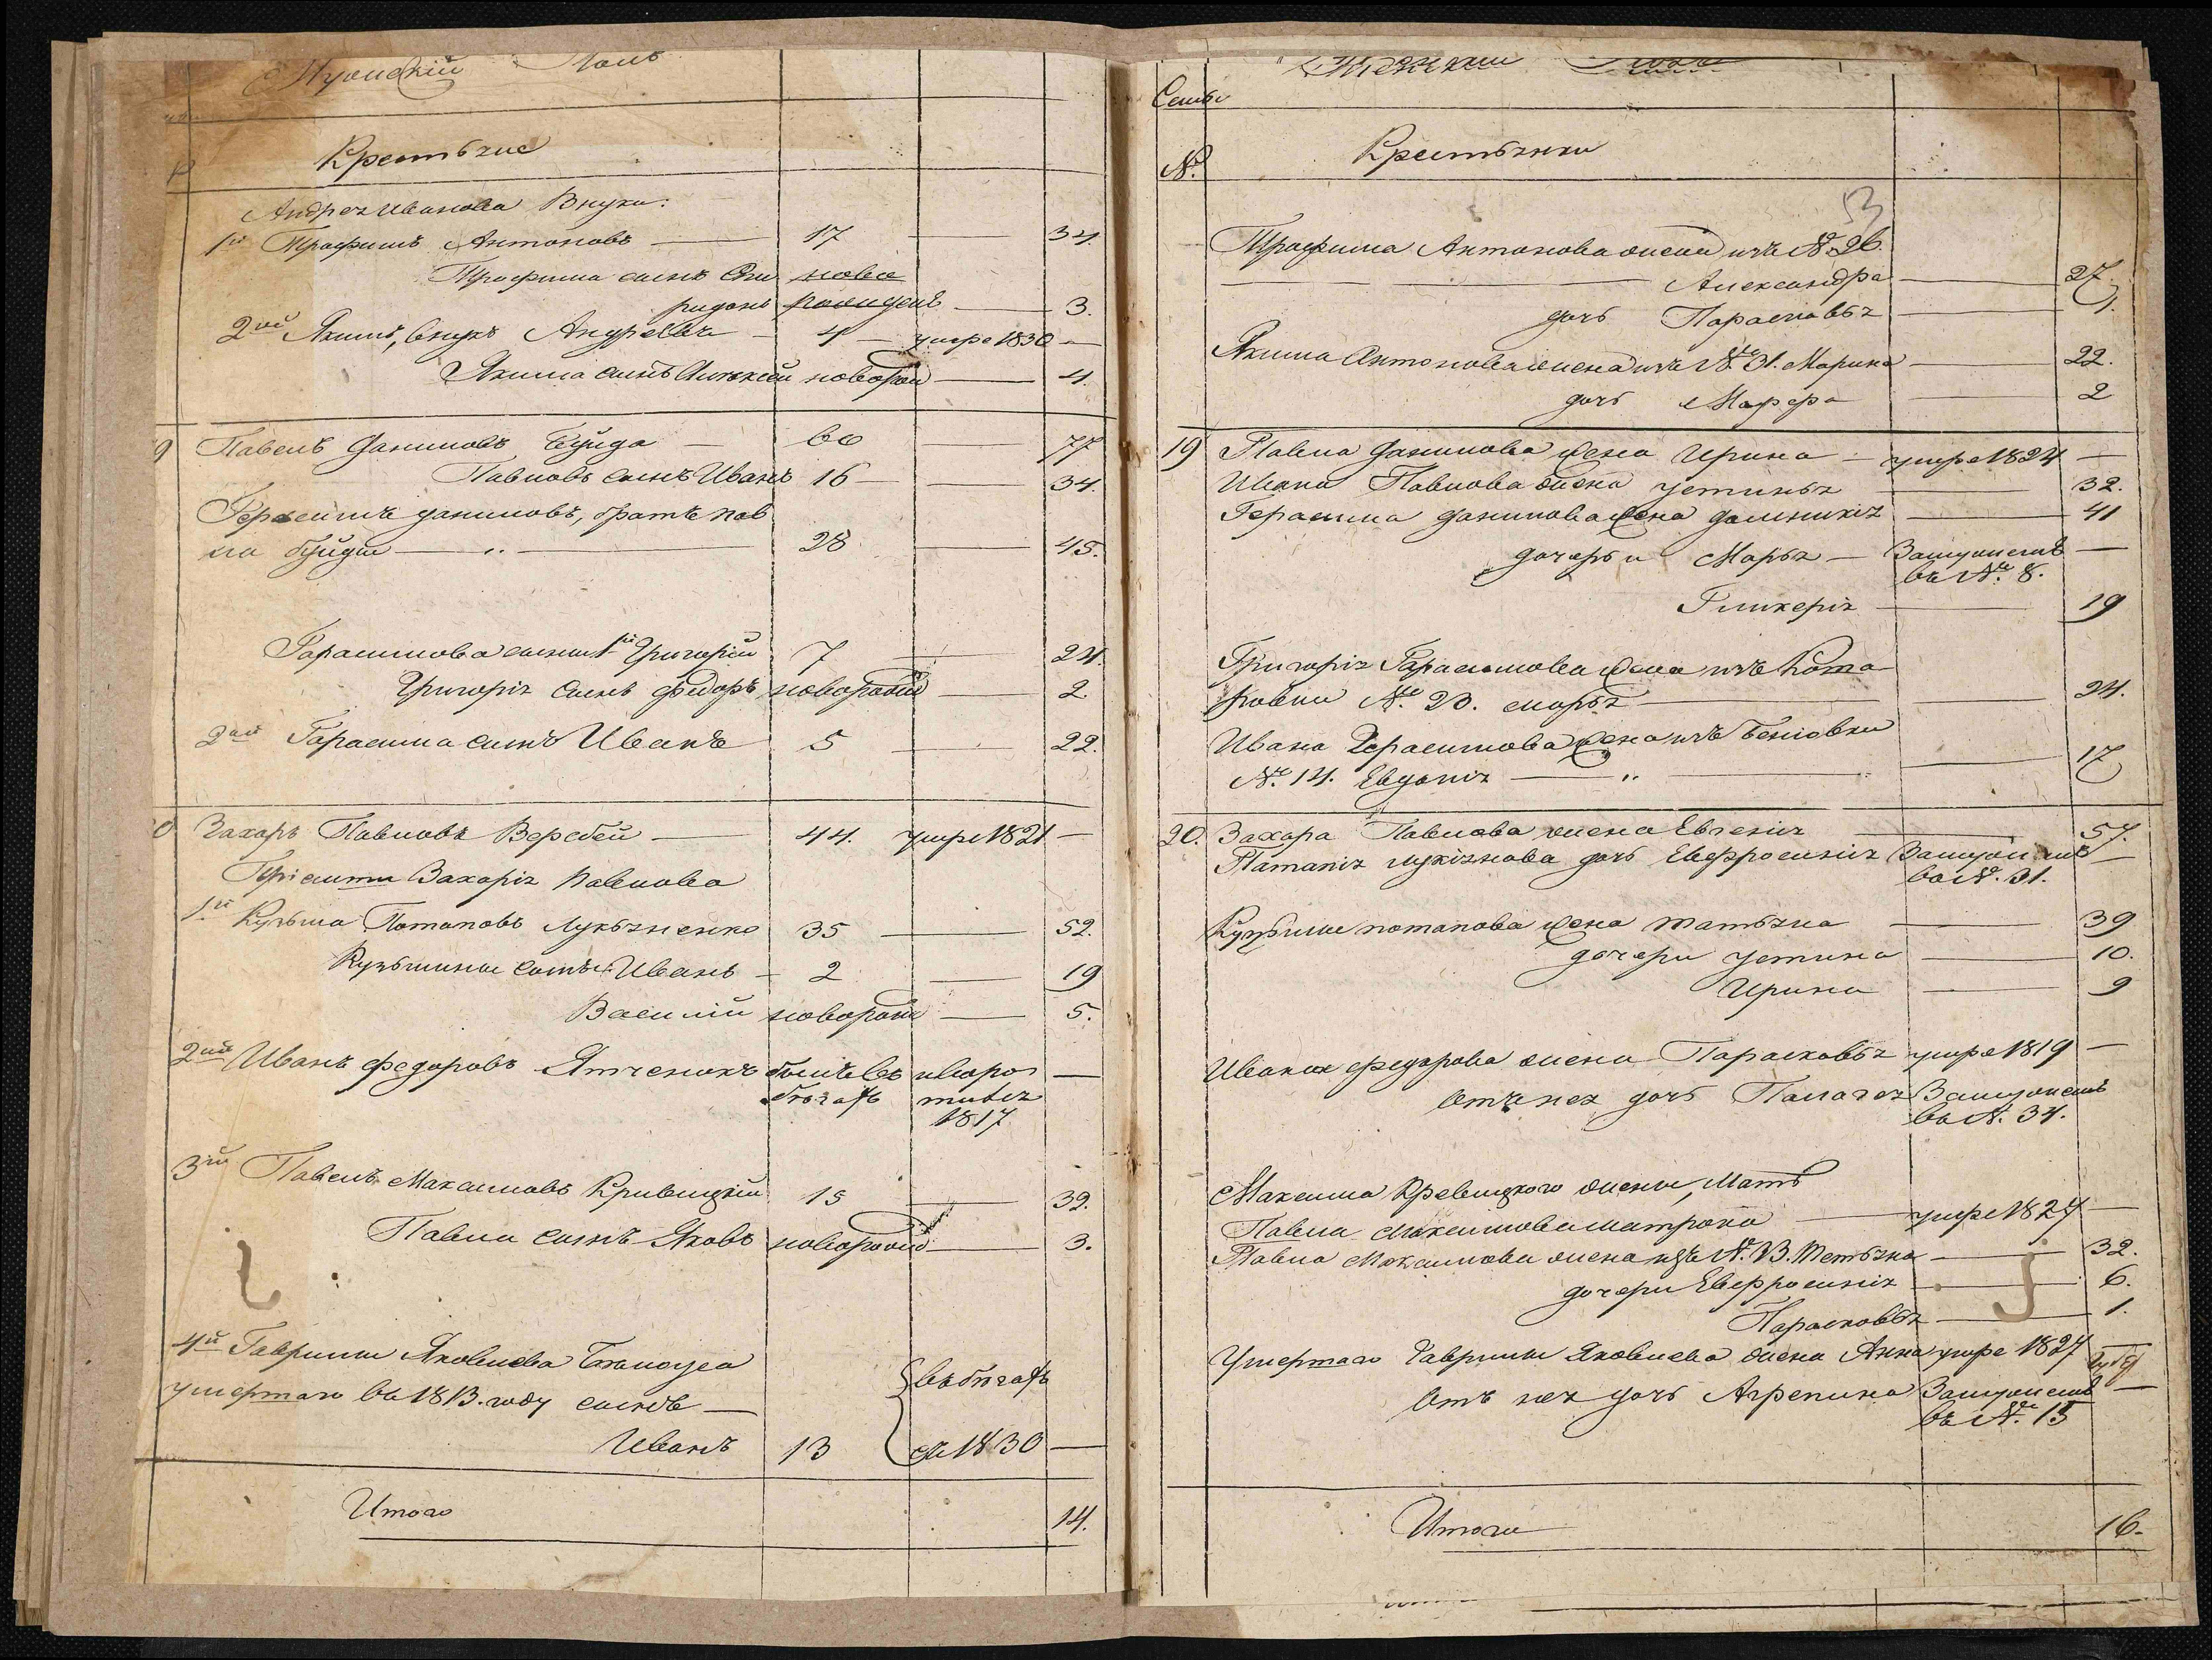 Мужескій Полъ
Крестьяне
Андрея Иванова Внуки:
1й Трофимъ Антоновъ — 17 — 34.
Трофима сынъ Спи ново
ридонъ рожденъ — 3.
2ой Якимъ, внукъ Андреевъ — 4 — умре 1830 —
Якима сынъ Алексей новорож — 4.
9 Павелъ Даниловъ Буйда — 60 77
Павловъ сынъ Иванъ 16 — 34.
Герасимъ Даниловъ, братъ Пав
ла Буйды — 28 — 45.
Гарасимова сыны 1й Григорій 7 — 24.
Григорія сынъ Федоръ новорожд — 2.
2ой Гарасима сынъ Иванъ 5 — 22.
0 Захаръ Павловъ Веребей — 44. умре 1821 —
Пріймы Захарія Павлова
1й Кузьма Потаповъ Лукьяненко 35 — 52.
Кузьмины сыны Иванъ — 2 — 19
Василій новорожд — 5.
2ой Иванъ Федоровъ Ятченокъ былъ въ иворо —
бѣгахъ тился
1817
3ій Павелъ Максимовъ Кривицкій 15 — 32.
Павла сынъ Яковъ новорожд — 3.
4й Гаврилы Яковлева
умертаго въ 1813. году сынъ —
въ бѣгахъ
Иванъ 13 съ 1830 —
Итого 14.
Женскій Полъ
Семьи
№. Крестьянки
53
Трофима Антонова жена изъ №. 26.
— Александра — 27.
дочь Парасковья — 1.
Якима Антонова жена изъ №. 31. Марина — 22.
дочь Марфа — 2
19 Павла Данилова жена Ирина — умре 1824 —
Ивана Павлова жена Устинья — 32.
Герасима Данилова жена Домникія — 41
дочери Марья — Замужемъ —
въ №. 8.
Гликерія — 19
Григорія Гарасимова жена изъ Кома
ровки №. 23. Марья — 24.
Ивана Герасимова жена изъ Беніовки
№. 14. Евдокія — 17
20. Захара Павлова жена Евгенія — 57.
Патапія Лукіянова дочь Евфросинія Замужемъ —
во №. 31.
Кузьмы Потапова жена Татьяна — 39
дочери Устина — 10.
Ирина — 9
Ивана Федорова жена Парасковья умре 1819 —
Отъ нея дочь Палагея Замужемъ
въ №. 34.
Максима Кревицкого жена, Мать
Павла Максимова Матрона — умре 1827 —
Павла Максимова жена изъ №. 13. Тетьяна — 32.
дочери Евфросинія — 6.
Парасковья — 1.
Умертаго Гаврилы Яковлева жена Анна умре 1827
Отъ нея дочь Агрепина Замужемъ —
въ №. 15
Итого 16.